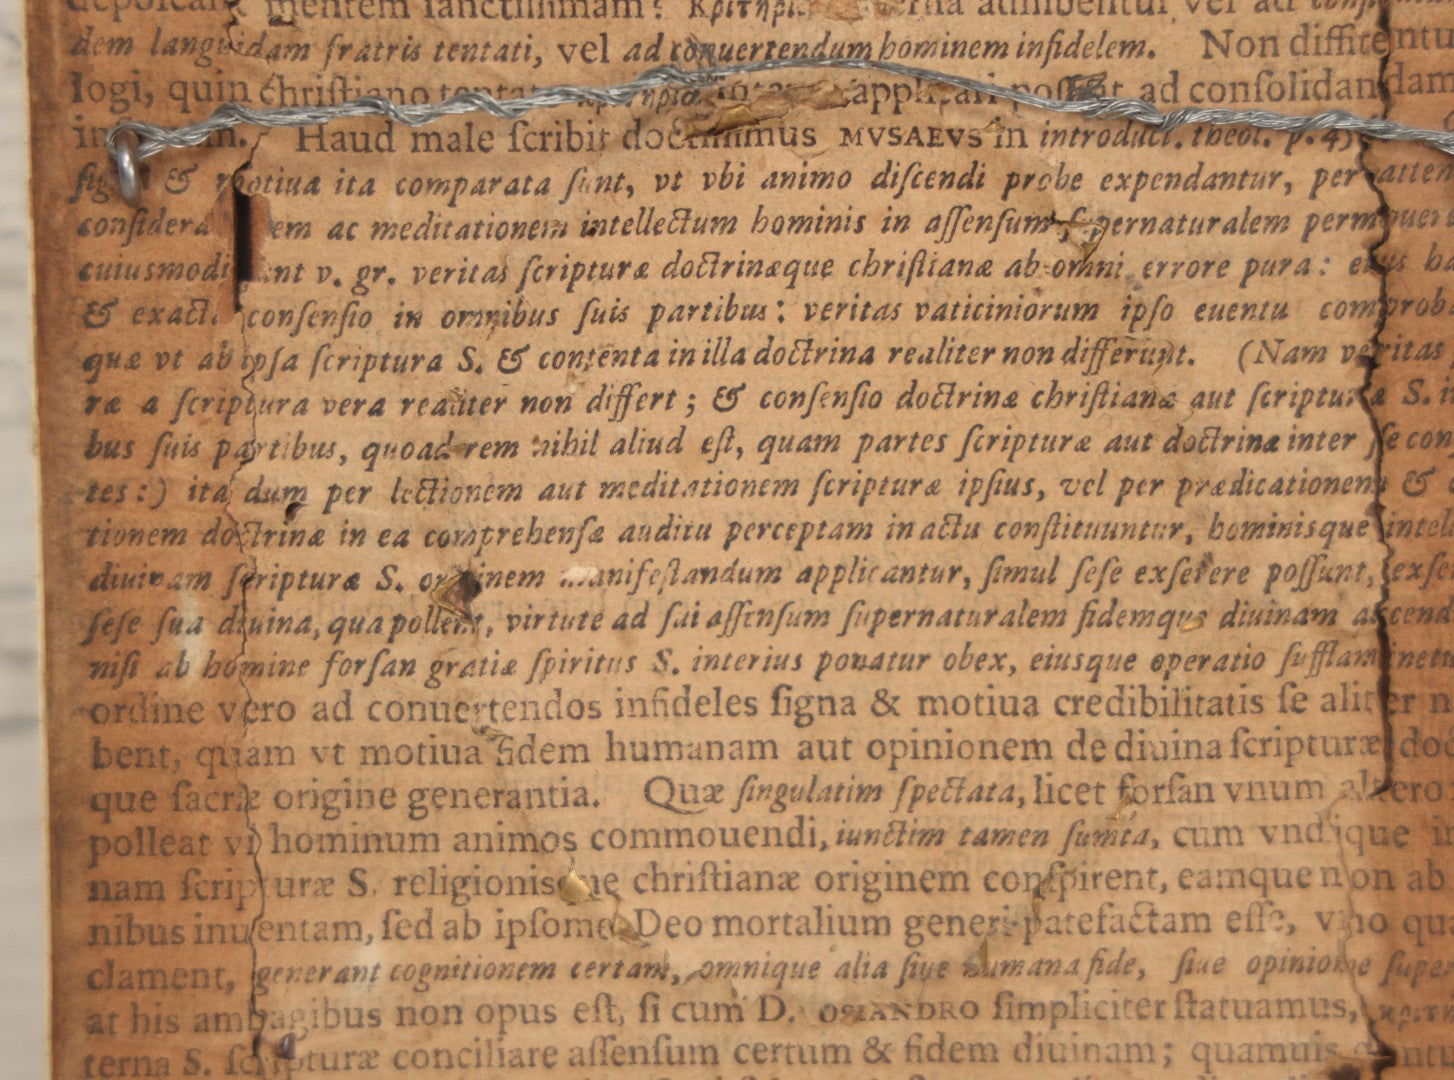 mentem ſanctiſſimam: adhibentur vel ad
dem languidam fratris tentati, vel ad conuertendum hominem infidelem. Non diffitentu
logi, quin chriſtiano applicari poſſint ad conſolidandam
Haud male ſcribit doctiſſimus MVSAEVS in introduct. theol. p. 43
& motiua ita comparata ſunt, vt vbi animo diſcendi probe expendantur, per atten
conſidera em ac meditationem intellectum hominis in aſſenſum ſupernaturalem permoueri
cuiusmodi ſunt v. gr. veritas ſcripturæ doctrinæque chriſtianæ ab omni errore pura: eius
& exacta conſenſio in omnibus ſuis partibus: veritas vaticiniorum ipſo euentu comprob
quæ vt ab ipſa ſcriptura S. & contenta in illa doctrina realiter non differunt. (Nam veritas
ræ a ſcriptura vera realiter non differt; & conſenſio doctrinæ chriſtianæ aut ſcripturæ S. i
bus ſuis partibus, quoad rem nihil aliud eſt, quam partes ſcripturæ aut doctrinæ inter ſe con
tes:) ita dum per lectionem aut meditationem ſcripturæ ipſius, vel per prædicationem &
tionem doctrinæ in ea comprehenſæ auditu perceptam in actu conſtituuntur, hominisque intel
diuinam ſcripturæ S. originem manifeſtandum applicantur, ſimul ſeſe exſerere poſſunt, exſe
ſeſe ſua diuina, qua pollent, virtute ad ſui aſſenſum ſupernaturalem fidemque diuinam
niſi ab homine forſan gratiæ ſpiritus S. interius ponatur obex, eiusque operatio ſufflaminetu
ordine vero ad conuertendos infideles ſigna & motiua credibilitatis ſe aliter
bent, quam vt motiua fidem humanam aut opinionem de diuina ſcripturæ doc
que ſacræ origine generantia. Quæ ſingulatim ſpectata, licet forſan vnum altero
polleat vi hominum animos commouendi, iunctim tamen ſumta, cum vndique
nam ſcripturæ S. religionisque chriſtianæ originem conſpirent, eamque non ab
nibus inuentam, ſed ab ipſomet Deo mortalium generi patefactam eſſe, vno
clament, generant cognitionem certam, omnique alia ſiue humana fide, ſiue opinione ſuper
at his ambagibus non opus eſt, ſi cum D. OSIANDRO ſimpliciter ſtatuamus,
terna S. ſcripturæ conciliare aſſenſum certum & fidem diuinam; quamuis